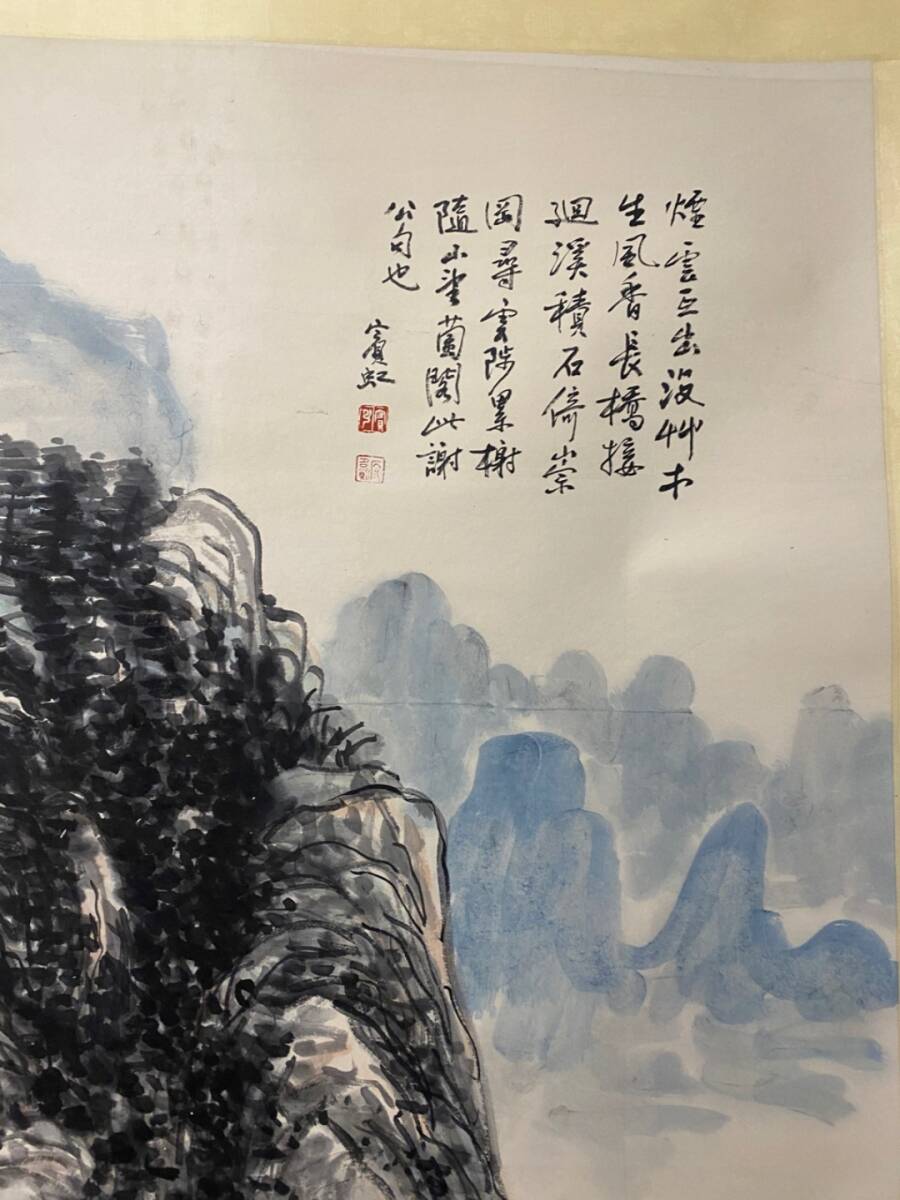 煙雲互出沒艸木
生風香長橋接
迴溪積石倚崇
岡尋雲陟累榭
隨山望菌閣此謝
公句也
賓虹